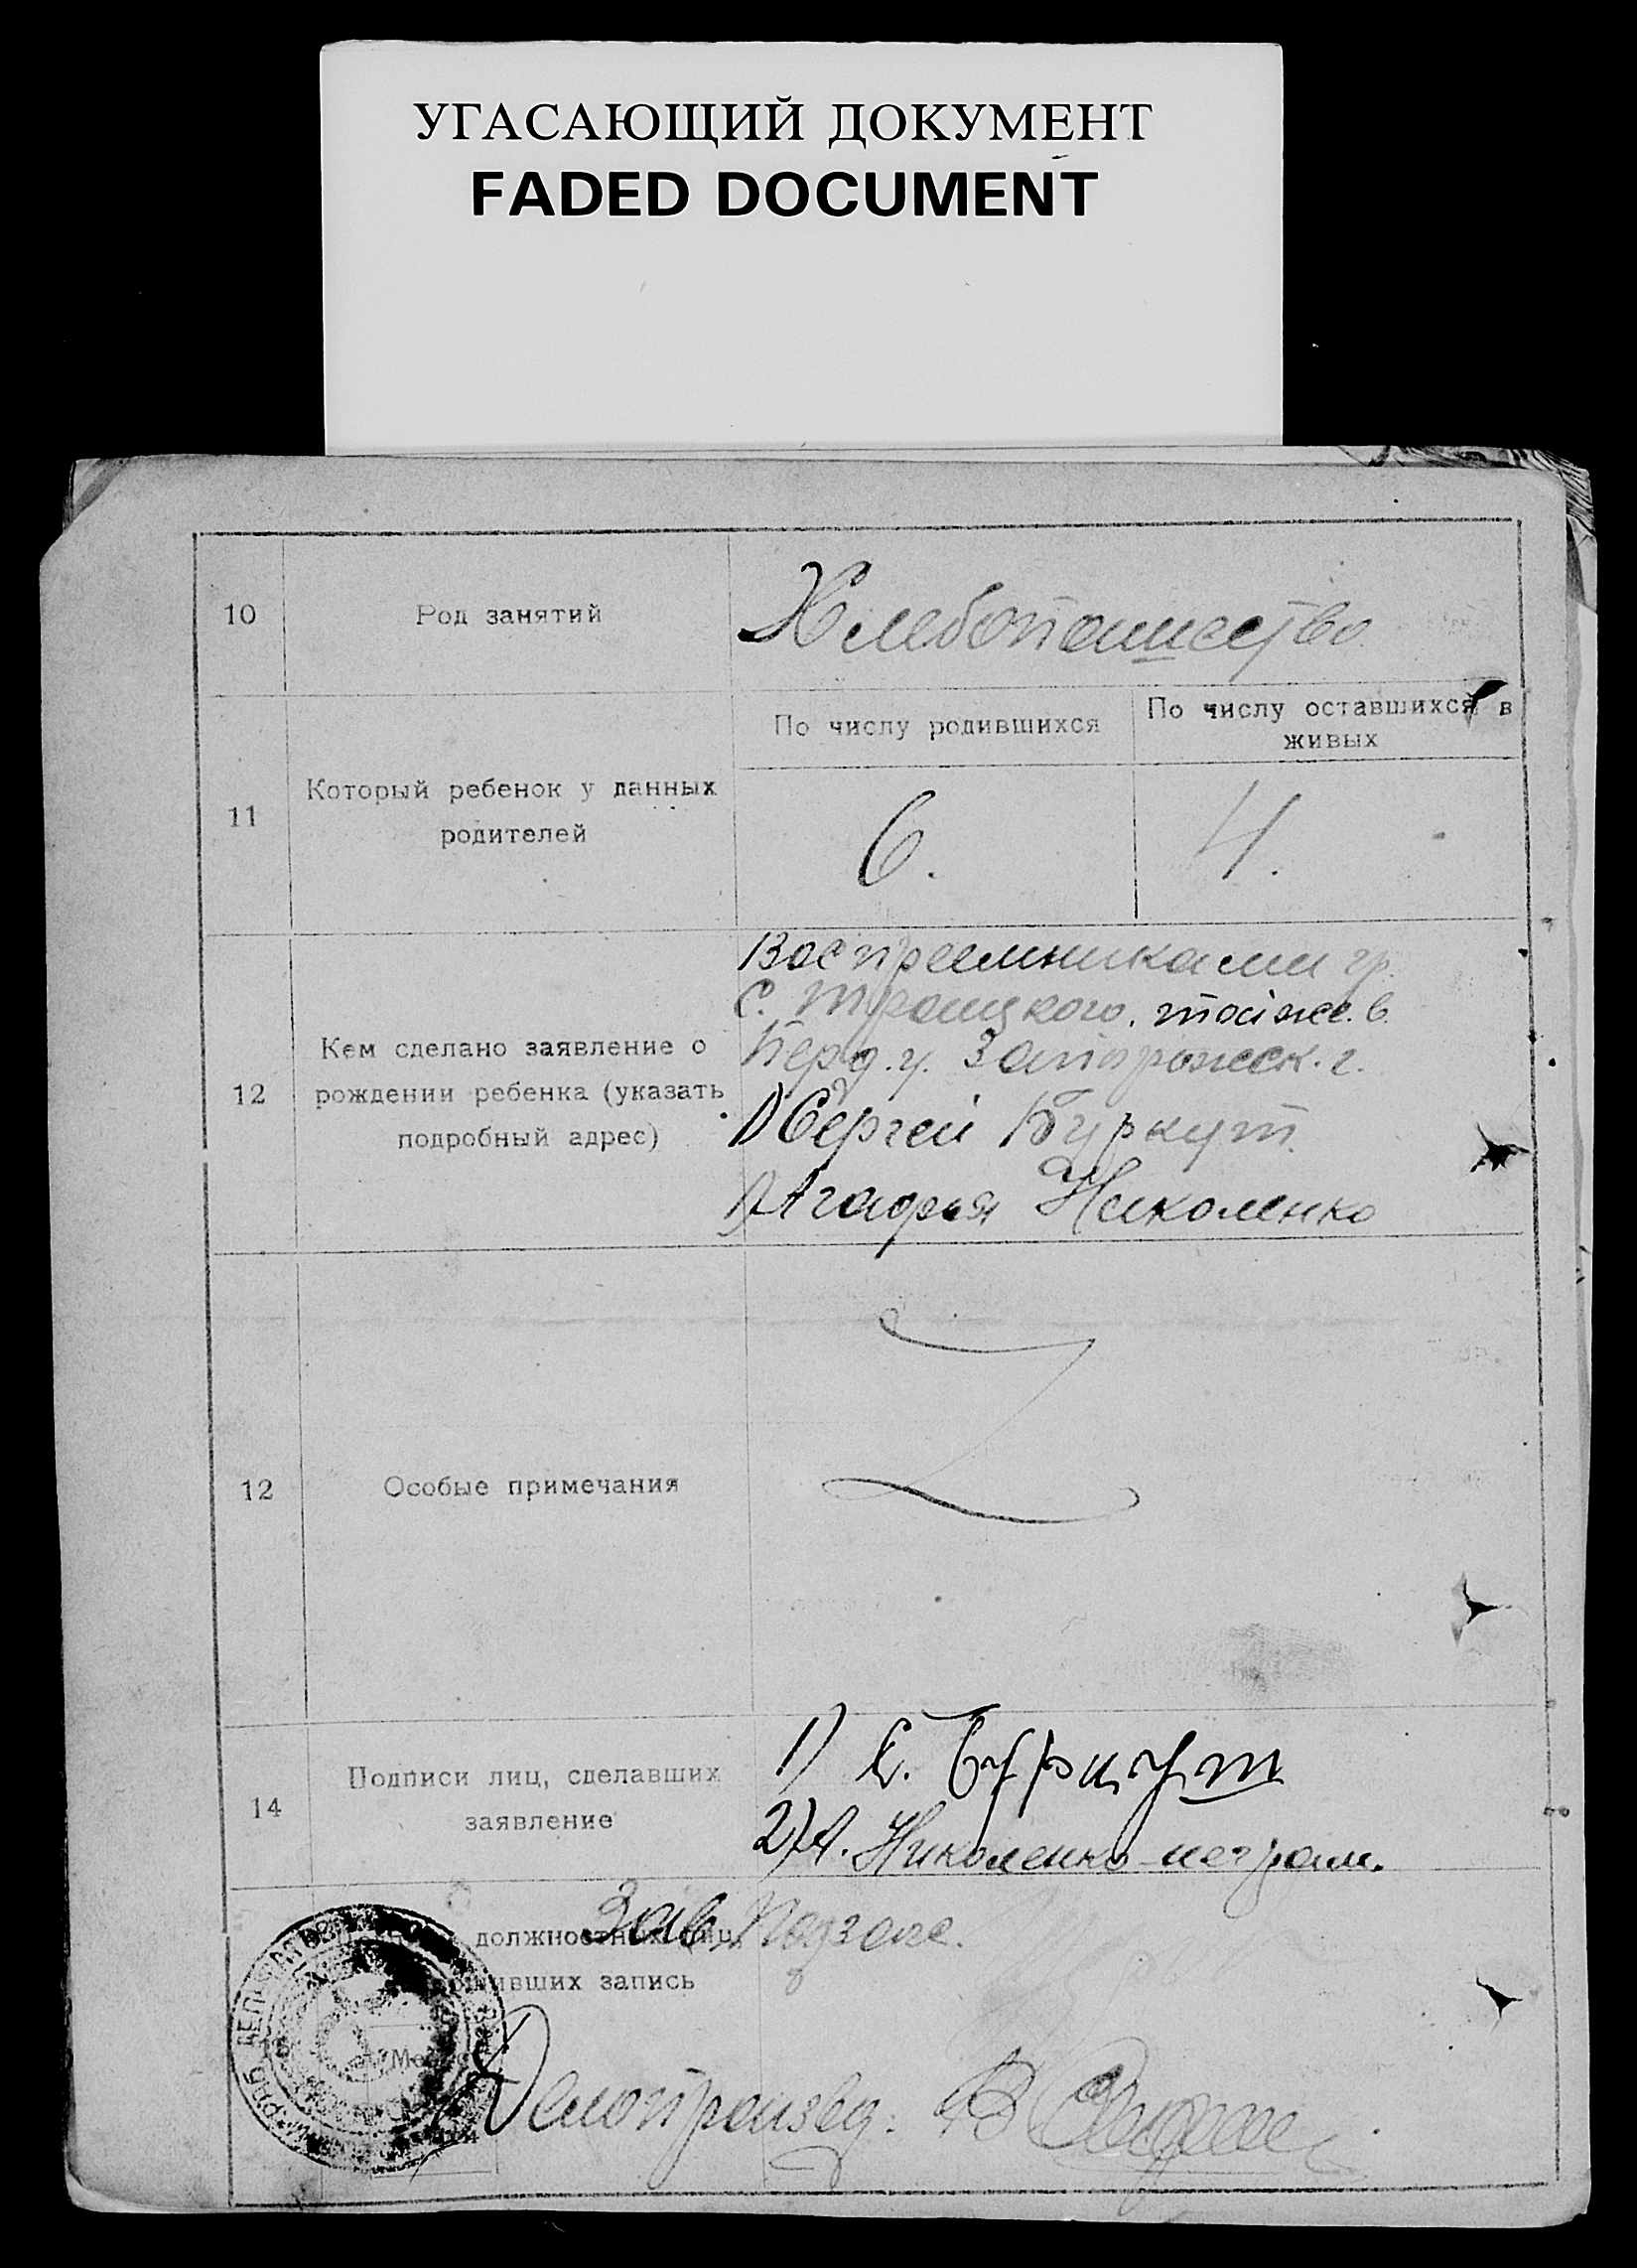 УГАСАЮЩИЙ ДОКУМЕНТ
FADED DOCUMENT
10
Род занятий
Хлебопашество
11
Который ребенок у данных
родителей
По числу родившихся
По числу оставшихся в
живых
6.
4.
12
Кем сделано заявление о
рождении ребенка (указать
подробный адрес)
Восприемниками гр.
С. Троицкого, тойже в.
Берд. у. Запорожск. г.
1) Сергей Буркут.
2) Агафья Николенко
12
Особые примечания
14
Подписи лиц, сделавших
заявление
1) С. Буркут
2) А. Николенко неграм.
Зав. Подзагс.
должностных лиц,
ивших запись
Делопроизвод.